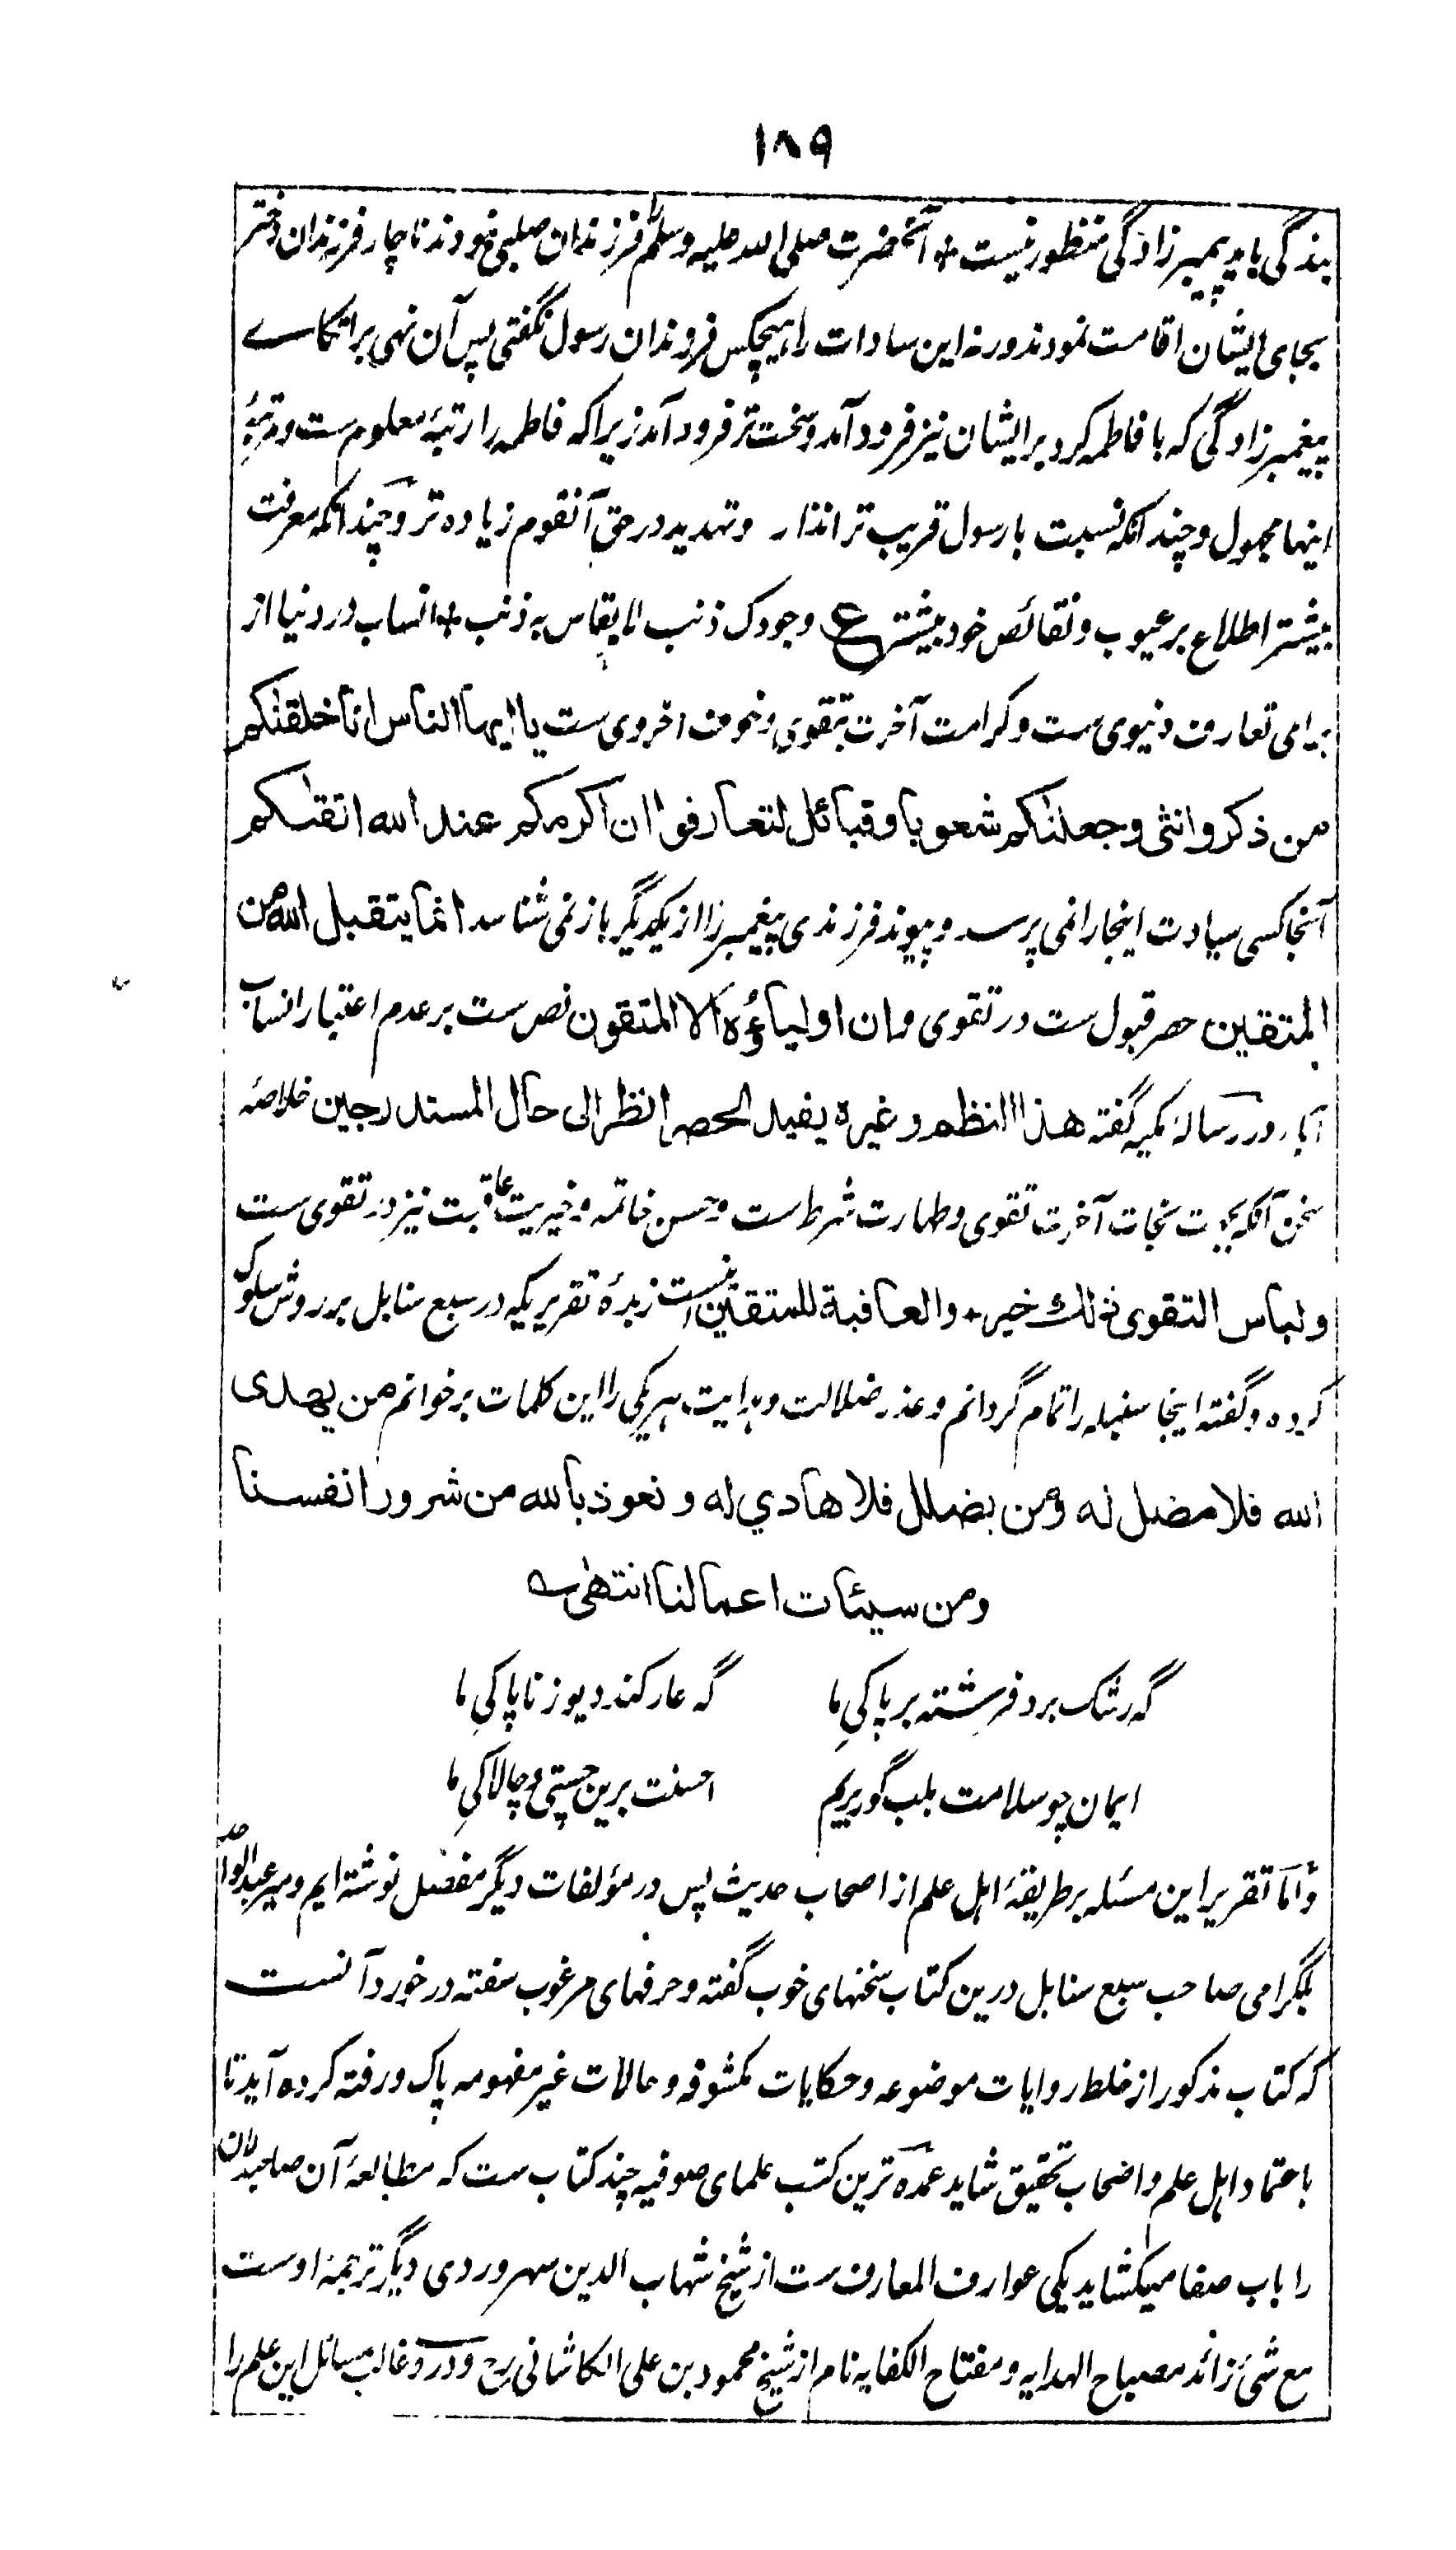 ۱۸۹
بندگی باید پیمبرزادگی منظور نیست * آنحضرت صلی الله علیه وسلم را فرزندان صلبی نبودند ناچار فرزندان دختر
بجای ایشان اقامت نمودند ورنه این سادات را هیچکس فرزندان رسول نگفتی پس آن نهی بر اتکاے
پیغمبرزادگی که با فاطمه کرد بر ایشان نیز فرود آمد و سخت تر فرود آمد زیراکه فاطمه را رتبهٔ معلوم ست و رتبهٔ
اینها مجهول و چندانکه نسبت با رسول قریب تر انذار و تهدید در حق آنقوم زیاده تر و چندانکه معرفت
بیشتر اطلاع بر عیوب و نقائص خود بیشتر ع وجودک ذنب لا یقاس به ذنب * انساب در دنیا از
برای تعارف دنیوی ست و کرامت آخرت بتقوی و خوف اخروی ست یا ایها الناس انا خلقنٰکم
من ذکر وانثی وجعلنٰکم شعوبا وقبائل لتعارفوا ان اکرمکم عند الله اتقٰکم
آنجا کسی سیادت اینجا را نمی پرسد و پیوند فرزندی پیغمبر را از یکدیگر باز نمی شناسد انما یتقبل الله من
المتقین حصر قبول ست در تقوی و ان اولیاؤه الا المتقون نص ست بر عدم اعتبار انساب
آبا و در رسالهٔ مکیه گفته هذا النظم وغیره یفید الحصر انظر الی حال المستدرجین خلاصهٔ
سخن آنکه بجهت نجات آخرت تقوی و طهارت شرط ست و حسن خاتمه و خیریت عاقبت نیز در تقوی ست
ولباس التقوی ذلك خیر * والعاقبة للمتقین انیست زبدهٔ تقریریکه در سبع سنابل بر روش سلوک
کرده و گفته اینجا سنبله را تمام گردانم و عذر ضلالت و هدایت هر یکی را این کلمات برخوانم من یهدی
الله فلا مضل له ومن یضلل فلا هادي له و نعوذ بالله من شرور انفسنا
ومن سیئات اعمالنا انتهی سه
گه رشک برد فرشته بر پاکیِ ما گه عار کند دیو ز ناپاکیِ ما
ایمان چو سلامت بلب گور بریم احسنت برین چستی و چالاکیِ ما
و اما تقریر این مسئله بر طریقهٔ اهل علم از اصحاب حدیث پس در مؤلفات دیگر مفصل نوشته ایم و میر عبدالواحد
بلگرامی صاحب سبع سنابل درین کتاب سخنهای خوب گفته و حرفهای مرغوب سفته در خورد آنست
که کتاب مذکور از خلط روایات موضوعه و حکایات مکشوفه و حالات غیر مفهومه پاک و رفته کرده آید تا
باعتماد اهل علم و اصحاب تحقیق شاید عمده ترین کتب علمای صوفیه چند کتاب ست که مطالعهٔ آن صاحبدلان
را باب صفا میکشاید یکی عوارف المعارف ست از شیخ شهاب الدین سهروردی دیگر ترجمهٔ اوست
مع شئ زائد مصباح الهدایه و مفتاح الکفایه نام از شیخ محمود بن علی الکاشانی رح و در و غالب مسائل این علم را